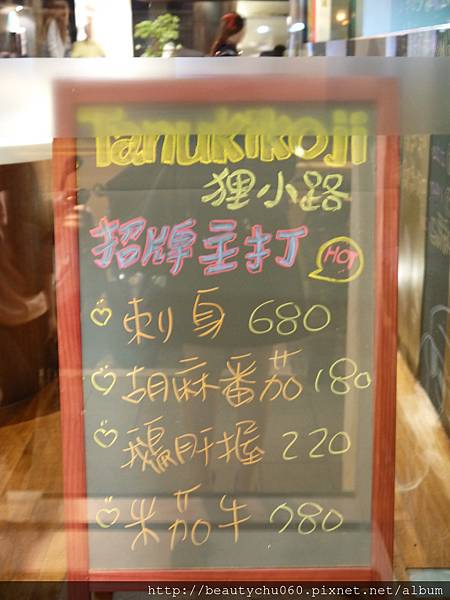 Tanukikoji
狸小路
招牌主打 HOT
刺身 680
胡麻番茄 180
鵝肝握 220
米茄牛 980
http://beautychu060.pixnet.net/album